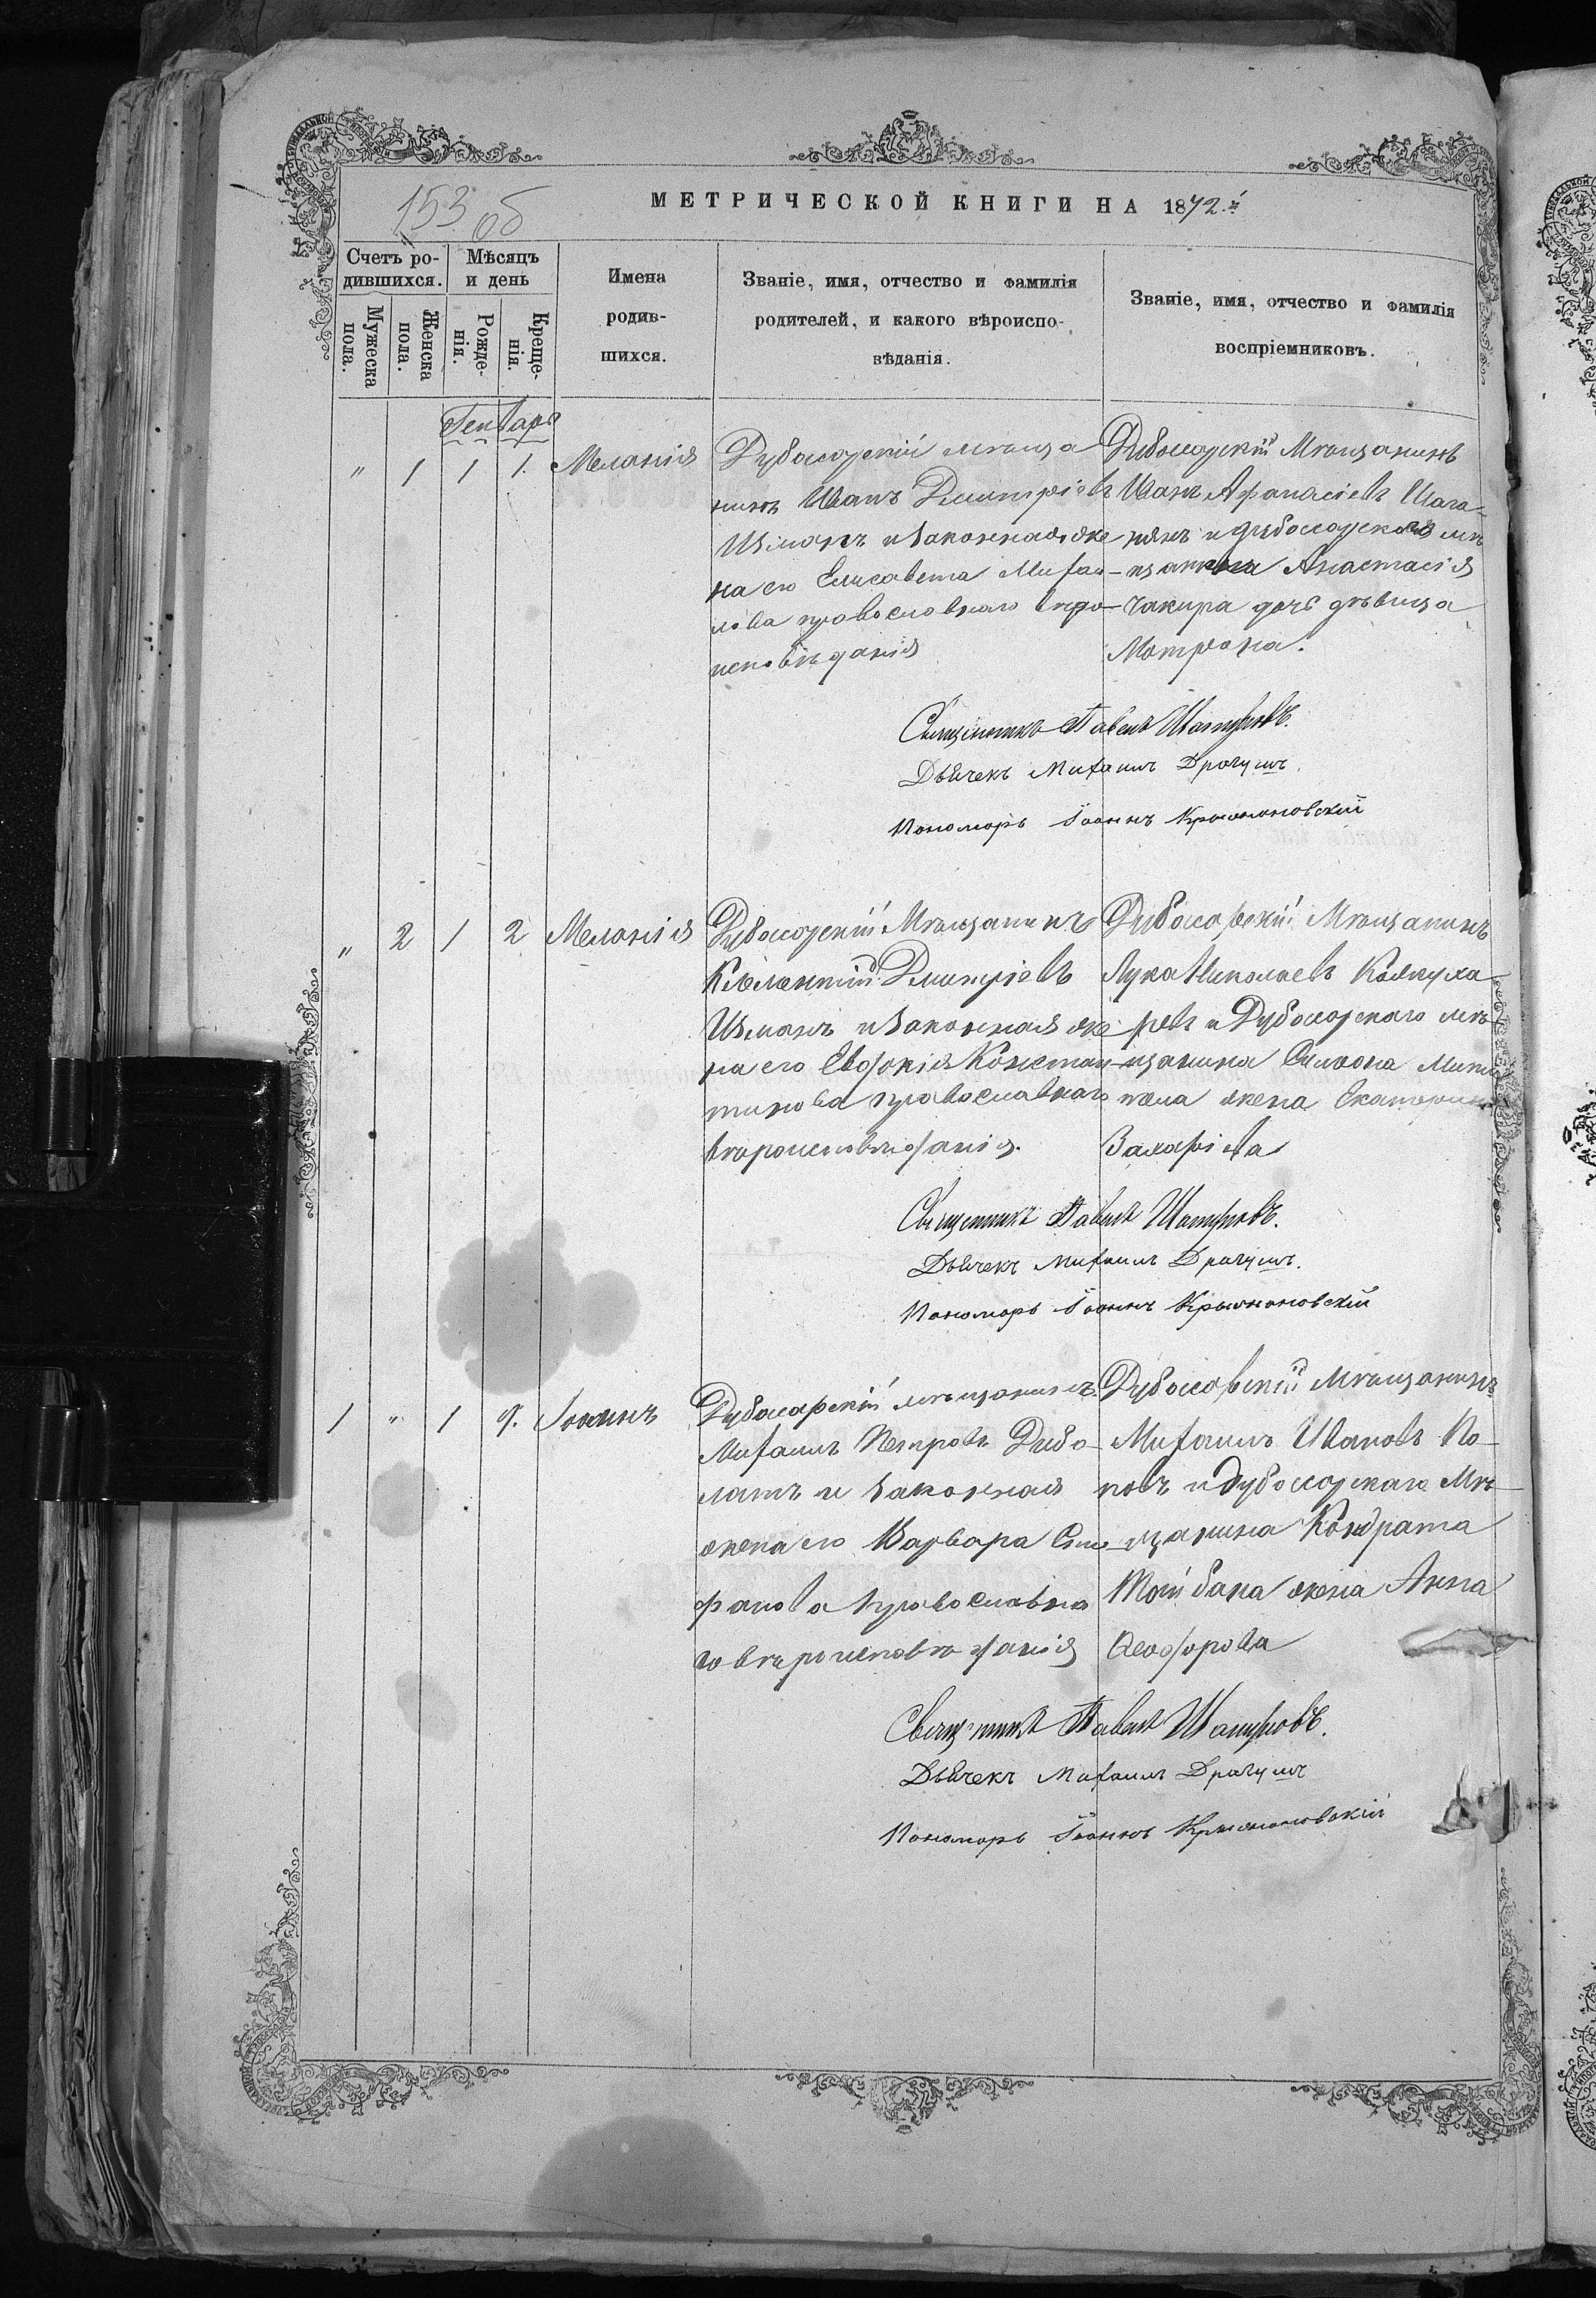 153 об
МЕТРИЧЕСКОЙ КНИГИ НА 1872.й
Счетъ ро-
дившихся.
Мужеска
пола.
Женска
пола.
Мѣсяцъ
и день
Рожде-
нія.
Креще-
нія.
Имена
родив-
шихся.
Званіе, имя, отчество и фамилія
родителей, и какого вѣроиспо-
вѣданія.
Званіе, имя, отчество и фамилія
воспріемниковъ.
Генварь
" 1 1 1. Меланія
Дубосарскій мѣща
нинъ Иванъ Дмитріевъ
и законная же
на его Елисавета Михаи-
лова православнаго вѣро-
исповѣданія
Дубоссарскій Мѣщанинъ
Иванъ Афанасіевъ
и дубоссарской мѣ
щанки Анастасія
Чакира дочь дѣвица
Матрона.
Священникъ Павелъ
Дьячекъ Михаилъ Драгушъ.
Пономарь Іоаннъ Крыжановскій
" 2 1 2 Меланія
Дубоссарскій Мѣщанинъ
Климентій Дмитріевъ
и законная же
на его Евдокія Констан-
тинова православнаго
вѣроисповѣданія.
Дубоссарскій Мѣщанинъ
Лука Николаевъ
и Дубоссарскаго мѣ-
щанина Симеона
жена Екатерина
Захаріева
Священникъ Павелъ
Дьячекъ Михаилъ Драгушъ.
Пономарь Іоаннъ Крыжановскій
1 " 1 9. Іоаннъ
Дубосарскій мѣщанинъ
Михаилъ Петровъ
и законная
жена его Варвара Сте
фанова православна
го вѣроисповѣданія
Дубоссарскій Мѣщанинъ
Михаилъ Ивановъ По-
повъ и дубоссарскаго Мѣ-
щанина Кондрата
жена Анна
Ѳеодорова
Священникъ Павелъ
Дьячекъ Михаилъ Драгушъ
Пономарь Іоаннъ Крыжановскій